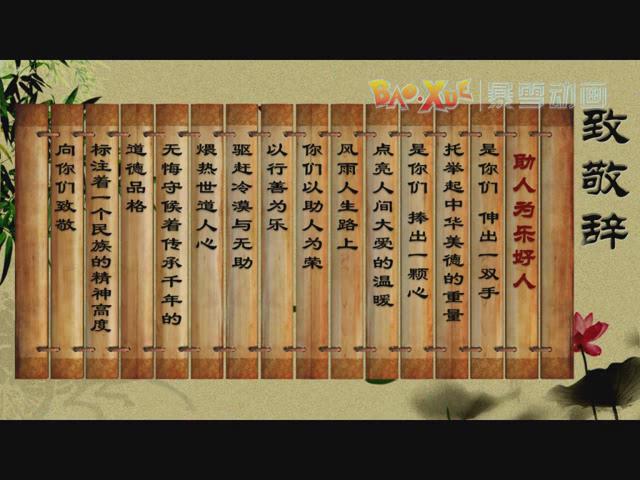 BAO.XUE 暴雪动画
致敬辞
助人为乐好人
是你们 伸出一双手
托举起中华美德的重量
是你们 捧出一颗心
点亮人间大爱的温暖
风雨人生路上
你们以助人为荣
以行善为乐
驱赶冷漠与无助
煨热世道人心
无悔守候着传承千年的
道德品格
标注着一个民族的精神高度
向你们致敬